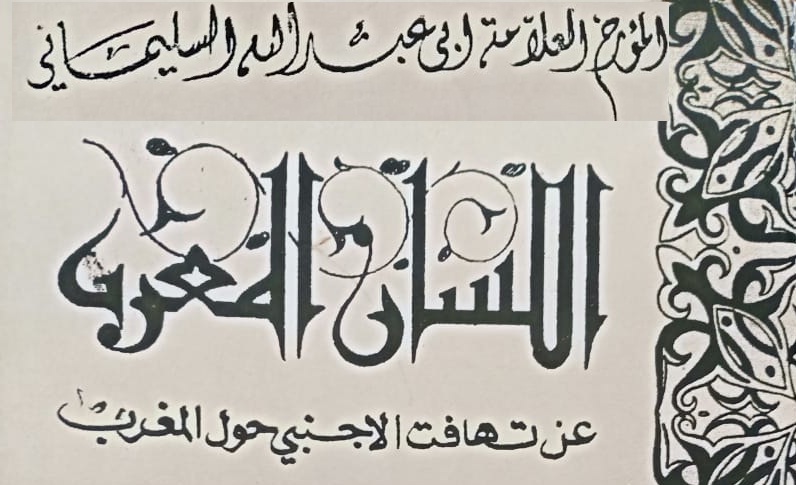 المؤرخ العلامة ابي عبد الله السليماني
اللسان المعرب
عن تهافت الاجنبي حول المغرب